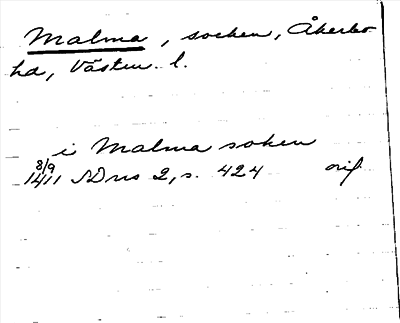 Malma, socken, Åkerbo
hd, Västm. l.
i Malma soken
8/9
1411 SD ns 2, s. 424 orig